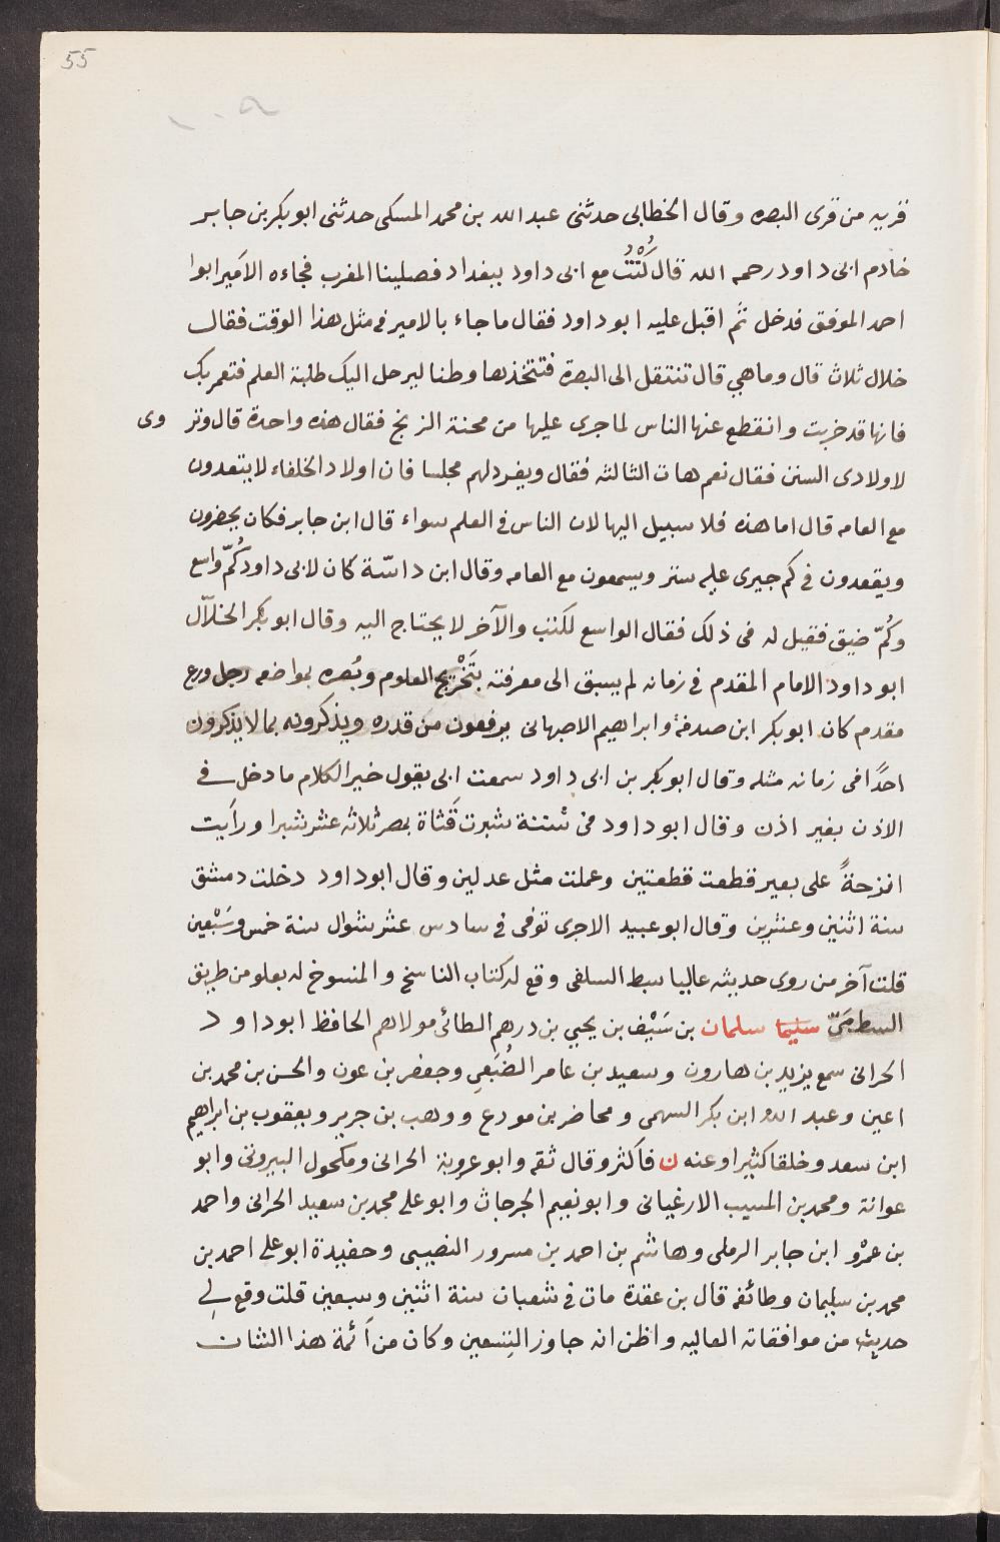 55
قريه من قرى البصره وقال الخطابى حدثنى عبد الله بن محمد المسكى حدثنى ابو بكر بن جابر
خادم ابى داود رحمه الله قال كُنْتُ مع ابى داود ببغداد فصلينا المغرب فجاءه الامير ابوا
احمد الموفق فدخل ثم اقبل عليه ابو داود فقال ما جاء بالامير فى مثل هذا الوقت فقال
خلال ثلاث قال وما هي قال تنتقل الى البصرة فتتخذها وطنا ليرحل اليك طلبة العلم فتعمر بك
فانها قد خربت وانقطع عنها الناس لما جرى عليها من محنة الزنج فقال هذه واحدة قال وتر وى
لاولادى السنن فقال نعم هات الثالثه فقال ويفرد لهم مجلسا فان اولاد الخلفاء لا يتعدون
مع العامه قال اما هذه فلا سبيل اليها لان الناس فى العلم سواء قال ابن جابر فكان يحضرون
ويقعدون فى كم جيرى عليه ستر ويسمعون مع العامه وقال ابن داسّة كان لابى داود كُمّ واسع
وكُمّ ضيق فقيل له فى ذلك فقال الواسع لكتب والآخر لا يحتاج اليه وقال ابو بكر الخلاّل
ابو داود الامام المقدم فى زمانه لم يسبق الى معرفته بتَخْريج العلوم وبُصره بمواضعه رجل ورع
مقدم كان ابو بكر ابن صدقة وابراهيم الاصبهانى يرفعون من قدره ويذكرونه بما لا يذكرون
احدًا فى زمانه مثله وقال ابو بكر بن ابى داود سمعت ابى يقول خير الكلام ما دخل فى
الاذن بغير اذن وقال ابو داود فى سننه شبرت قَثاة بمصر ثلاثه عشر شبرا ورايت
اترجةً على بعير قطعت قطعتين وعملت مثل عدلين وقال ابو داود دخلت دمشق
سنة اثنين وعشرين وقال ابو عبيد الاجرى توفى فى سادس عشر شوال سنة خمس وسَبْعين
قلت آخر من روى حديثه عاليا سبط السلفى وقع له كتاب الناسخ والمنسوخ له بعلو من طريق
السط سليما سلمان بن سَيْف بن يحيى بن درهم الطائى مولاهم الحافظ ابو داود
الحرانى سمع يزيد بن هارون وسعيد بن عامر الضُبَعى وجعفر بن عون والحسن بن محمد بن
اعين وعبد الله ابن بكر السهمى ومحاضر بن مورع ووهب بن جرير ويعقوب بن ابراهيم
ابن سعد وخلقا كثيرا وعنه ن فاكثر وقال ثقه وابو عروبة الحرانى ومكحول البيروتى وابو
عوانة ومحمد بن المسيب الارغيانى وابو نعيم الجرجاث وابو على محمد بن سعيد الحرانى واحمد
بن عمْرو ابن جابر الرملى وهاشم بن احمد بن مسرور النصيبى وحفيدة ابو على احمد بن
محمد بن سليمان وطائفه قال بن عقدة مات فى شعبان سنة اثنين وسبعين قلت وقع لى
حديثه من موافقاته العاليه واظن انه جاوز التسعين وكان من أئمة هذا الشان